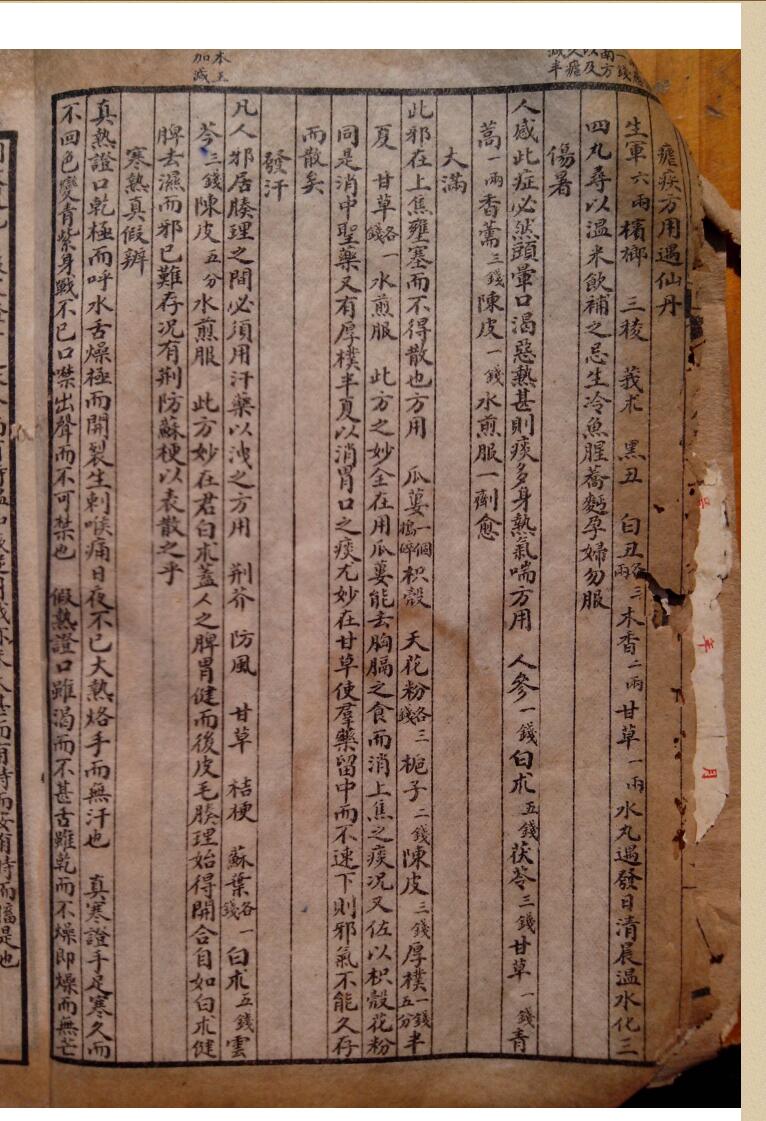 瘧疾方用遇仙丹
生軍六兩檳榔 三稜 莪朮 黑丑 白丑各三兩木香二兩甘草一兩水丸遇發日清晨温水化三
四丸尋以温米飲補之忌生冷魚腥蕎麪孕婦勿服
傷暑
人感此症必然頭暈口渴惡熱甚則痰多身熱氣喘方用 人參一錢白朮五錢茯苓三錢甘草一錢青
蒿一兩香薷三錢陳皮一錢水煎服一劑愈
大滿
此邪在上焦壅塞而不得散也方用 瓜蔞一個搗碎枳殼 天花粉各三錢梔子二錢陳皮三錢厚樸一錢五分半
夏 甘草各一錢水煎服 此方之妙全在用瓜蔞能去胸膈之食而消上焦之痰况又佐以枳殼花粉
同是消中聖藥又有厚樸半夏以消胃口之痰尤妙在甘草使羣藥留中而不速下則邪氣不能久存
而散矣
發汗
凡人邪居腠理之間必須用汗藥以洩之方用 荆芥 防風 甘草 桔梗 蘇葉各一錢白朮五錢雲
苓三錢陳皮五分水煎服 此方妙在君白朮蓋人之脾胃健而後皮毛腠理始得開合自如白朮健
脾去濕而邪已難存况有荆防蘇梗以表散之乎
寒熱真假辨
真熱證口乾極而呼水舌燥極而開裂生刺喉痛日夜不已大熱烙手而無汗也 真寒證手足寒久而
不回色變青紫身戰不已口噤出聲而不可禁也 假熱證口雖渴而不甚舌雖乾而不燥即燥而無芒